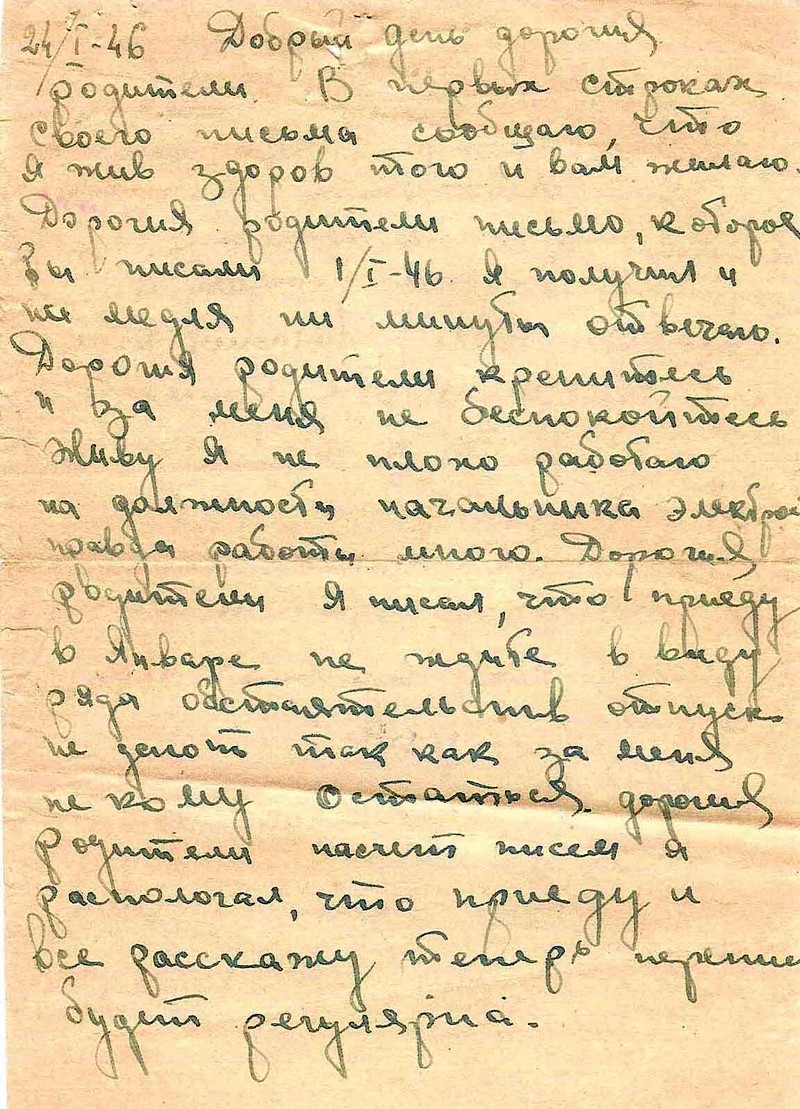 24/I-46 Добрый день дорогия
родители. В первых строках
своего письма сообщаю, что
я жив здоров того и вам желаю.
Дорогия родители письмо, которое
Вы писали 1/I-46 я получил и
не медля ни минуты отвечаю.
Дорогия родители крепитесь
и за меня не беспокойтесь
живу я не плохо работаю
на должности начальника электро
правда работы много. Дорогия
родители я писал, что приеду
в январе не ждите в виду
ряда обстоятельств отпуск
не дают так как за меня
не кому остаться. дорогия
родители насчет писем я
распологал, что приеду и
все расскажу теперь перепис
будет регулярна.